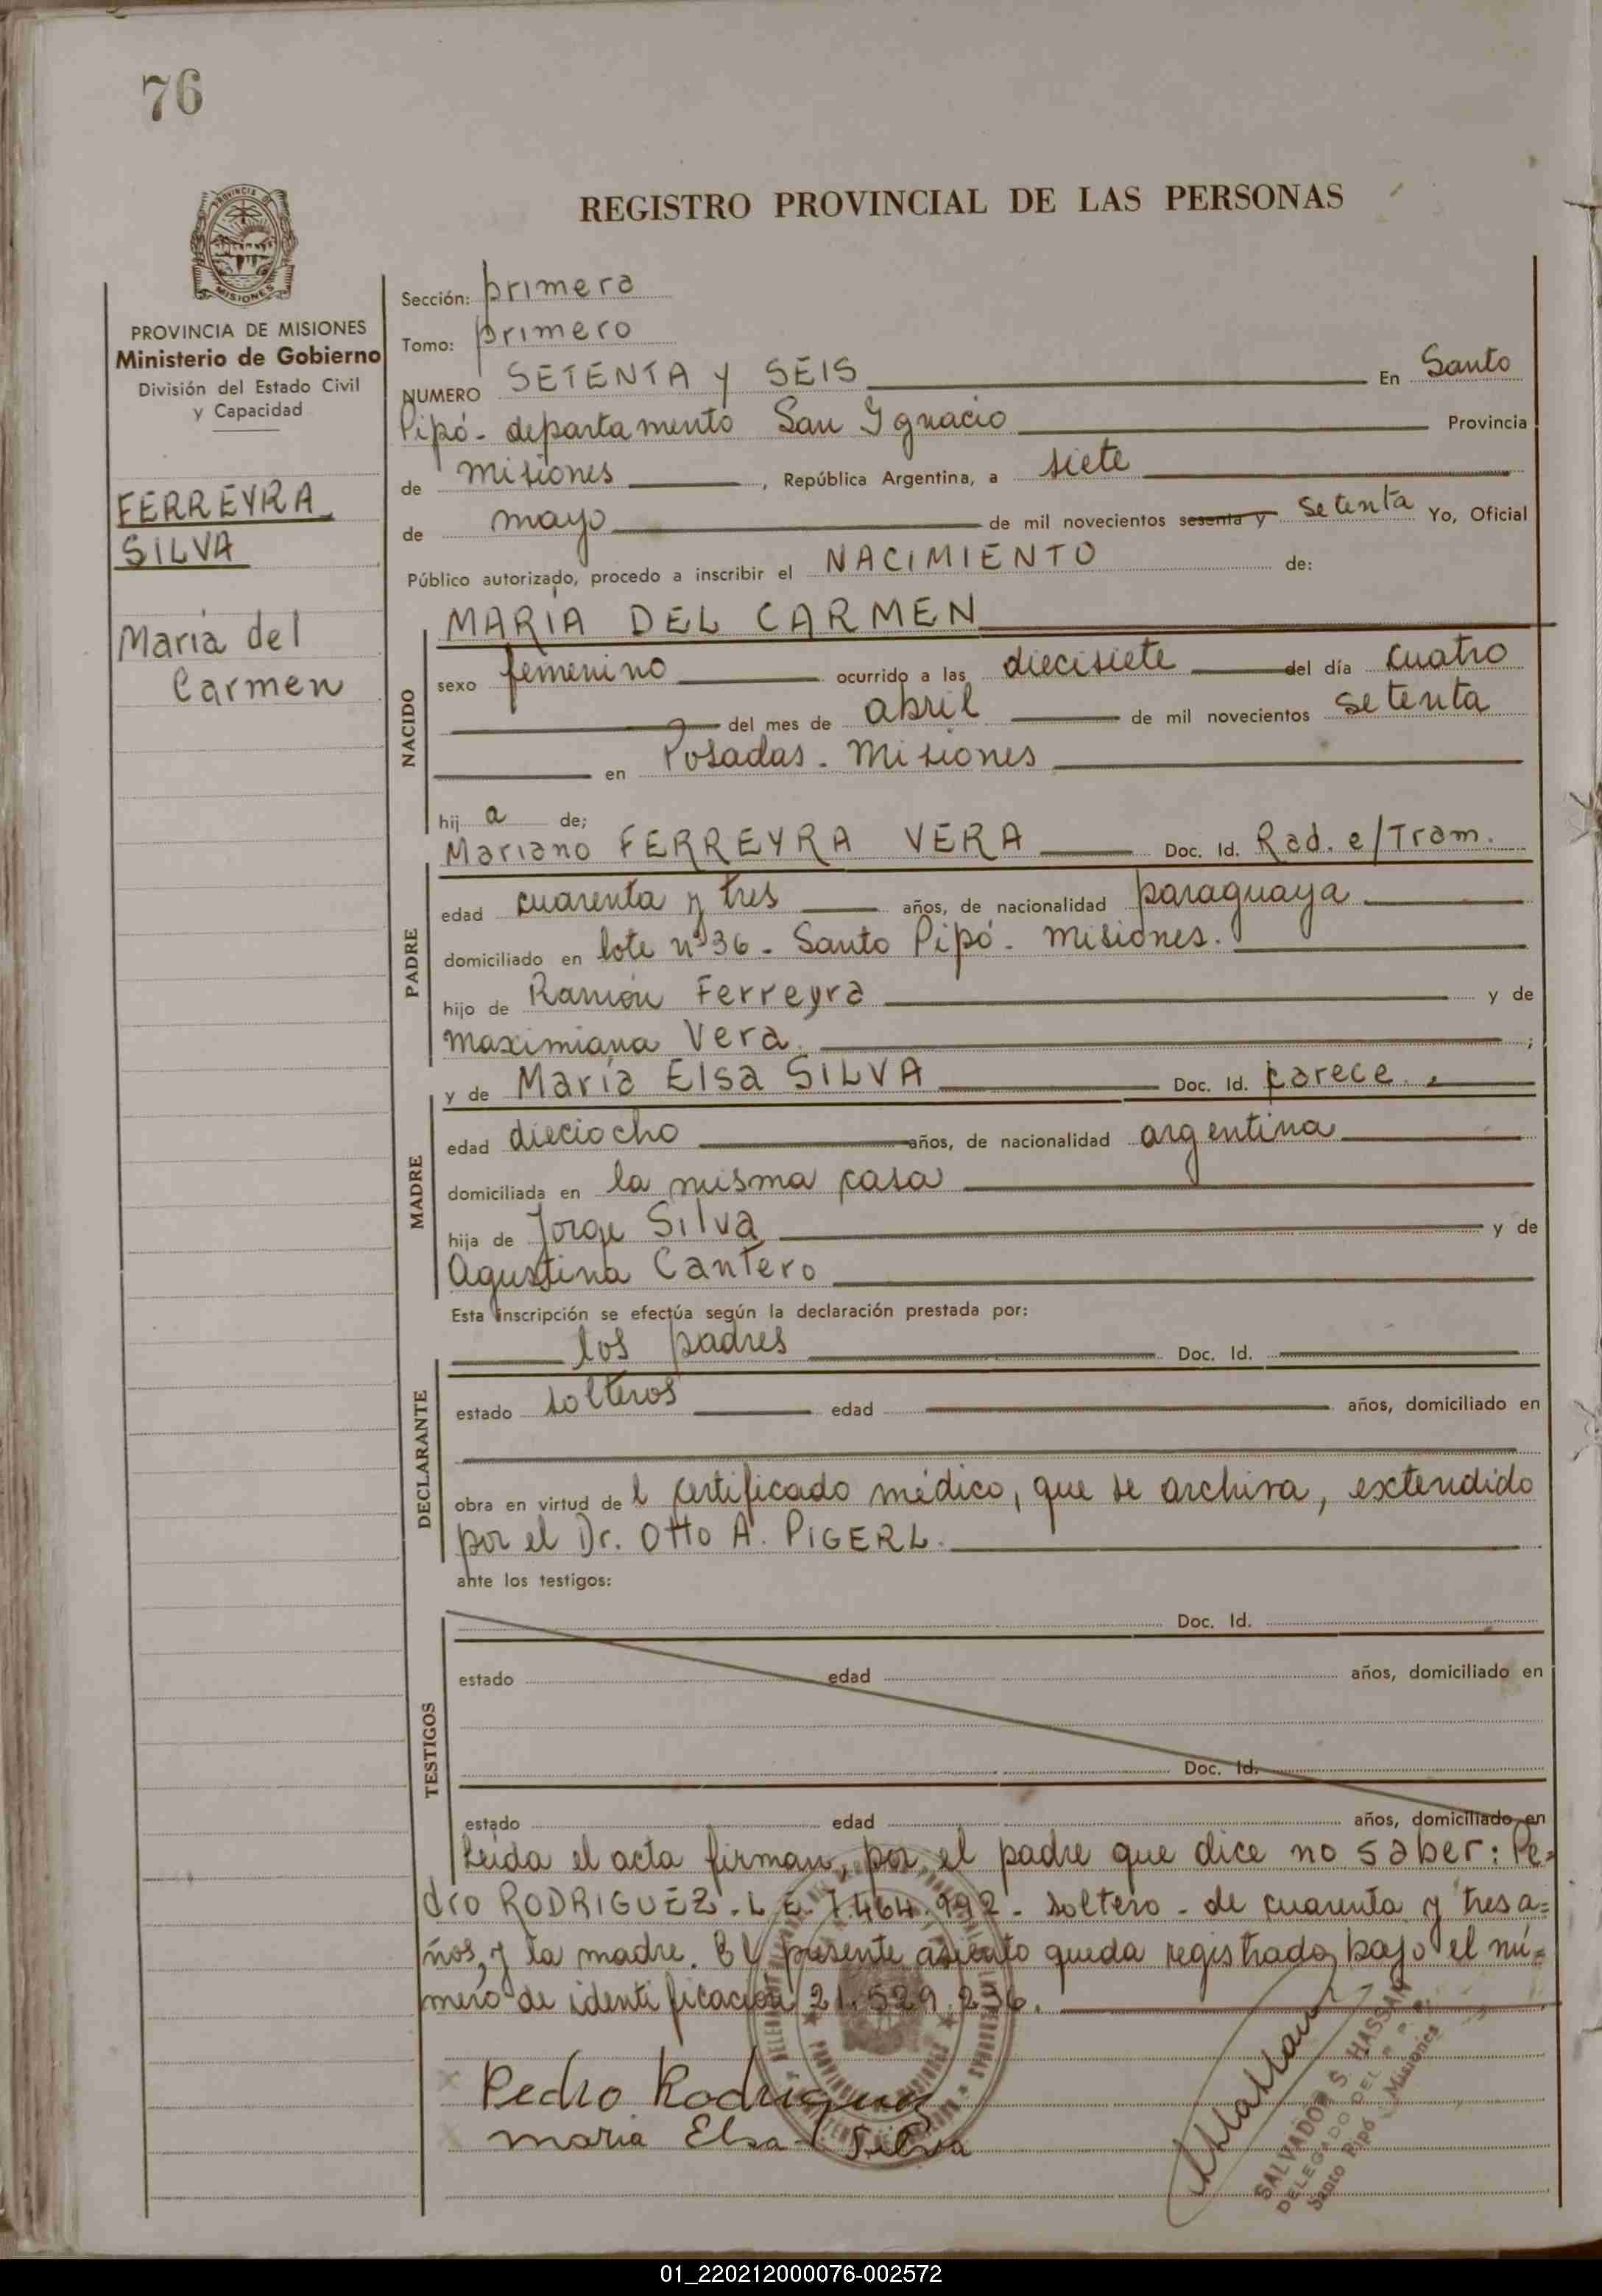 76
REGISTRO PROVINCIAL DE LAS PERSONAS
PROVINCIA
MISIONES
PROVINCIA DE MISIONES
Ministerio de Gobierno
División del Estado Civil
y Capacidad
FERREYRA
SILVA
María del
Carmen
Sección: primera
Tomo: primero
NUMERO SETENTA Y SEIS En Santo
Pipó - departamento San Ignacio Provincia
de Misiones, República Argentina, a siete
de mayo de mil novecientos sesenta y setenta Yo, Oficial
Público autorizado, procedo a inscribir el NACIMIENTO de:
NACIDO
MARIA DEL CARMEN
sexo femenino ocurrido a las diecisiete del día cuatro
del mes de abril de mil novecientos setenta
en Posadas - Misiones
hij a de;
PADRE
Mariano FERREYRA VERA Doc. Id. Rad. e/Tram.
edad cuarenta y tres años, de nacionalidad paraguaya
domiciliado en lote nº 36 - Santo Pipó - Misiones.
hijo de Ramón Ferreyra y de
Maximiana Vera. ;
MADRE
y de María Elsa SILVA Doc. Id. carece.
edad dieciocho años, de nacionalidad argentina
domiciliada en la misma casa
hija de Jorge Silva y de
Agustina Cantero
Esta inscripción se efectúa según la declaración prestada por:
DECLARANTE
los padres Doc. Id.
estado solteros edad años, domiciliado en
obra en virtud de l certificado médico, que se archiva, extendido
por el Dr. Otto A. PIGERL.
ante los testigos:
TESTIGOS
Doc. Id.
estado edad años, domiciliado en
Doc. Id.
estado edad años, domiciliado en
Leída el acta firman, por el padre que dice no saber: Pe=
dro RODRIGUEZ. L.E. 7.464.992 - soltero - de cuarenta y tres a=
ños, y la madre. El presente asiento queda registrado bajo el nú=
mero de identificación 21.529.236.
Pedro Rodriguez
Maria Elsa Silva
SALVADOR S. HASSAN
DELEGADO DEL R. P. P.
Santo Pipó - Misiones
01_220212000076-002572